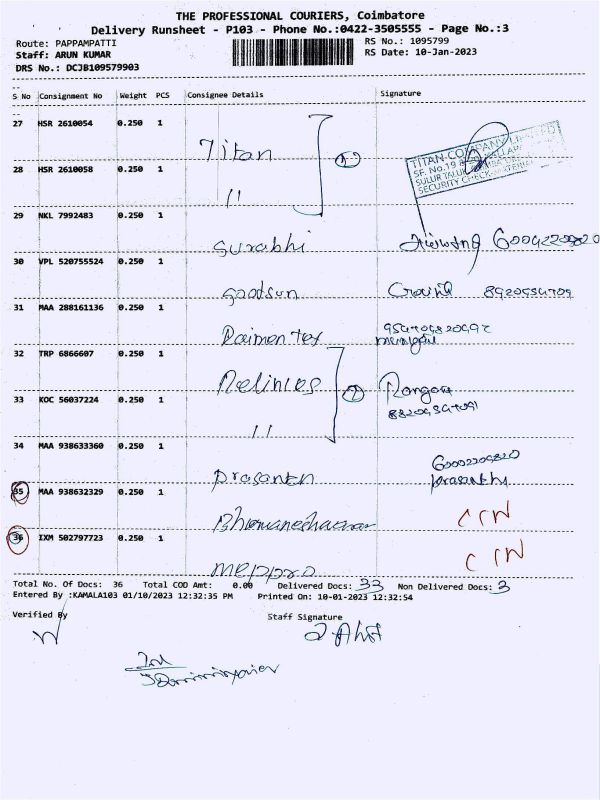 THE PROFESSIONAL COURIERS, Coimbatore
Delivery Runsheet - P103 - Phone No.:0422-3505555 - Page No.:3
Route: PAPPAMPATTI RS No.: 1095799
Staff: ARUN KUMAR RS Date: 10-Jan-2023
DRS No.: DCJB109579903
S No Consignment No Weight PCS Consignee Details Signature
27 HSR 2610054 0.250 1
Titan
TITAN COMPANY LIMITED
SF. No.19
SULUR TALUK
SECURITY CHECK
28 HSR 2610058 0.250 1
"
29 NKL 7992483 0.250 1
Surabhi
30 VPL 520755524 0.250 1
Goodsun
31 MAA 288161136 0.250 1
Daimon Tex
32 TRP 6866607 0.250 1
33 KOC 56037224 0.250 1
"
34 MAA 938633360 0.250 1
Prasanth prasanth
35 MAA 938632329 0.250 1
36 IXM 502797723 0.250 1
Total No. Of Docs: 36 Total COD Amt: 0.00 Delivered Docs: 33 Non Delivered Docs: 3
Entered By :KAMALA103 01/10/2023 12:32:35 PM Printed On: 10-01-2023 12:32:54
Verified By Staff Signature